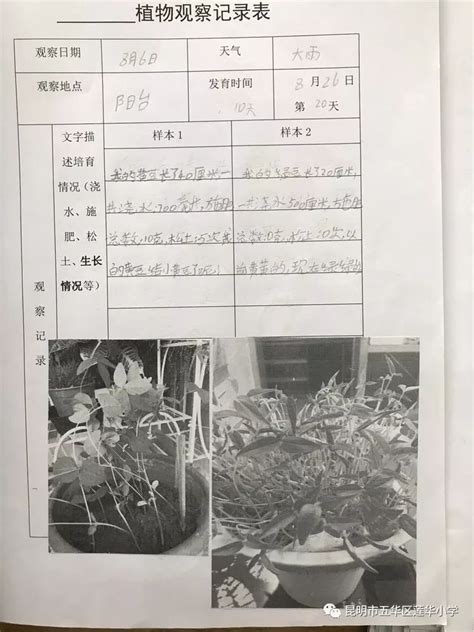 植物观察记录表
观察日期 8月6日 天气 大雨
观察地点 阳台 发育时间 10天 8月26日 第20天
文字描述培育情况（浇水、施肥、松土、生长情况等）
样本1 样本2
我的黄豆长了40厘米,一
共浇水700毫米,施肥
总数,10克,松土15次,我
的黄豆结小黄豆了呢!
我的绿豆长了20厘米,
一共浇水500厘米,施肥
总数10克,松土10次,以
观察记录
昆明市五华区莲华小学